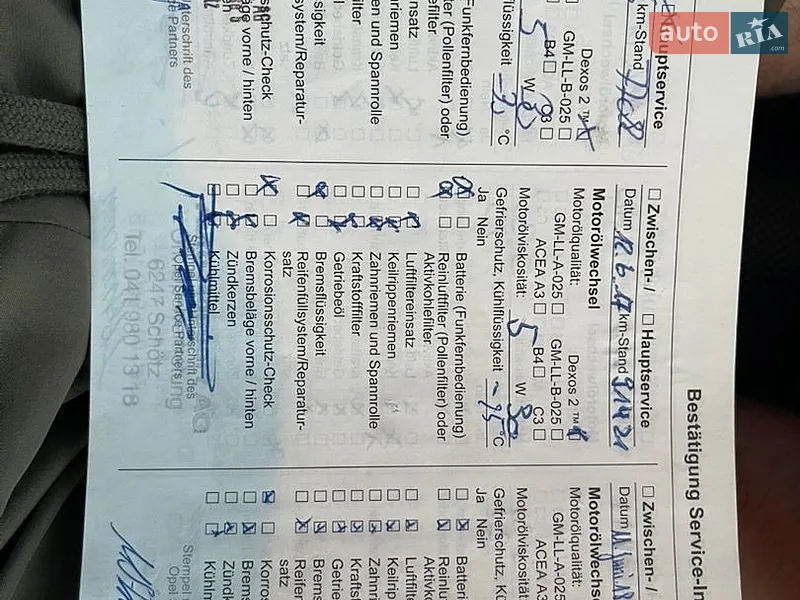 auto RIA
.com
Bestätigung Service-In
Hauptservice
km-Stand
Dexos 2 ™
GM-LL-B-025
B4 C3
5 W 30
°C
Funkfernbedienung) /
(Pollenfilter) oder
en und Spannrolle
system/Reparatur-
schutz-Check
vorne / hinten
Zwischen- / Hauptservice
Datum 12.6.17 km-Stand 91421
Motorölwechsel
Motorölqualität: Dexos 2 ™
GM-LL-A-025 GM-LL-B-025
ACEA A3 B4 C3
Motorölviskosität: 5 W 30
Gefrierschutz, Kühlflüssigkeit -25 °C
Ja Nein
Batterie (Funkfernbedienung)
Reinluftfilter (Pollenfilter) oder
Aktivkohlefilter
Luftfiltereinsatz
Keilrippenriemen
Zahnriemen und Spannrolle
Kraftstofffilter
Getriebeöl
Bremsflüssigkeit
Reifenfüllsystem/Reparatur-
satz
Korrosionsschutz-Check
Bremsbeläge vorne / hinten
Zündkerzen
Kühlmittel
6247 Schötz
Tel. 041 980 13 18
Zwischen- /
Datum
Motorölwechse
Motorölqualität:
GM-LL-A-025
ACEA A3
Motorölviskosität
Gefrierschutz, Kü
Ja Nein
Batteri
Reinlu
Aktivko
Luftfilt
Keilrip
Zahnr
Krafts
Getrie
Brems
Reifer
satz
Korro
Brem
Zünd
Kühln
Stempel
Opel